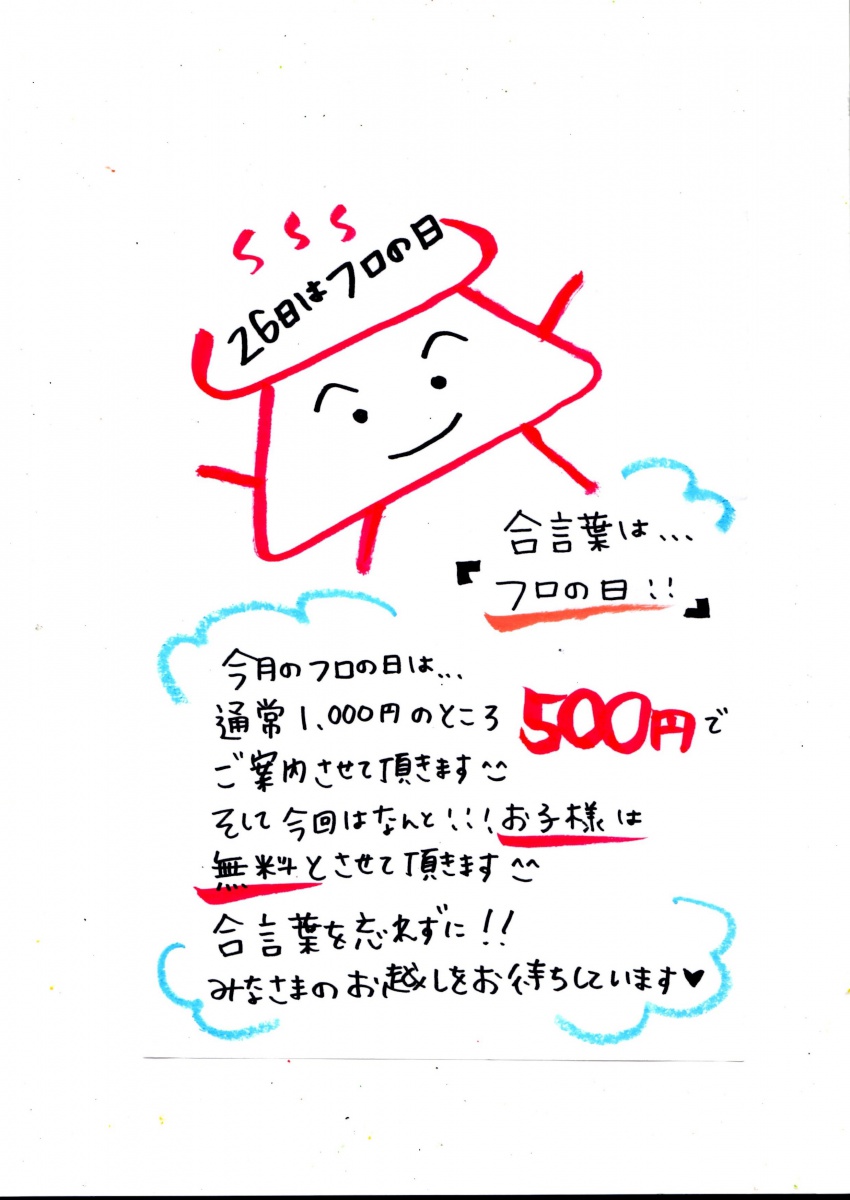 26日はフロの日
合言葉は...
『フロの日!!』
今月のフロの日は...
通常1,000円のところ 500円で
ご案内させて頂きます
そして今回はなんと!!!お子様は
無料とさせて頂きます
合言葉を忘れずに!!
みなさまのお越しをお待ちしています♥